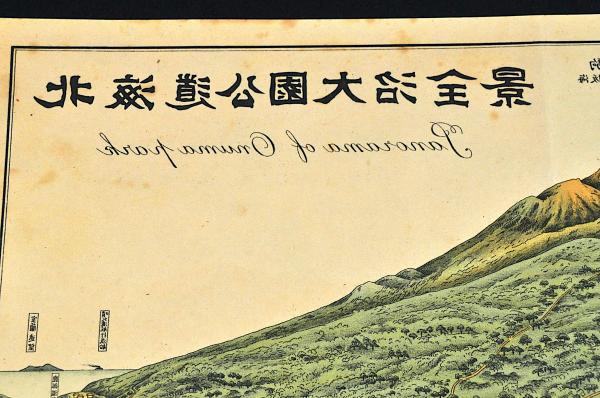 北海道公園大沼全景
Panorama of Onuma park